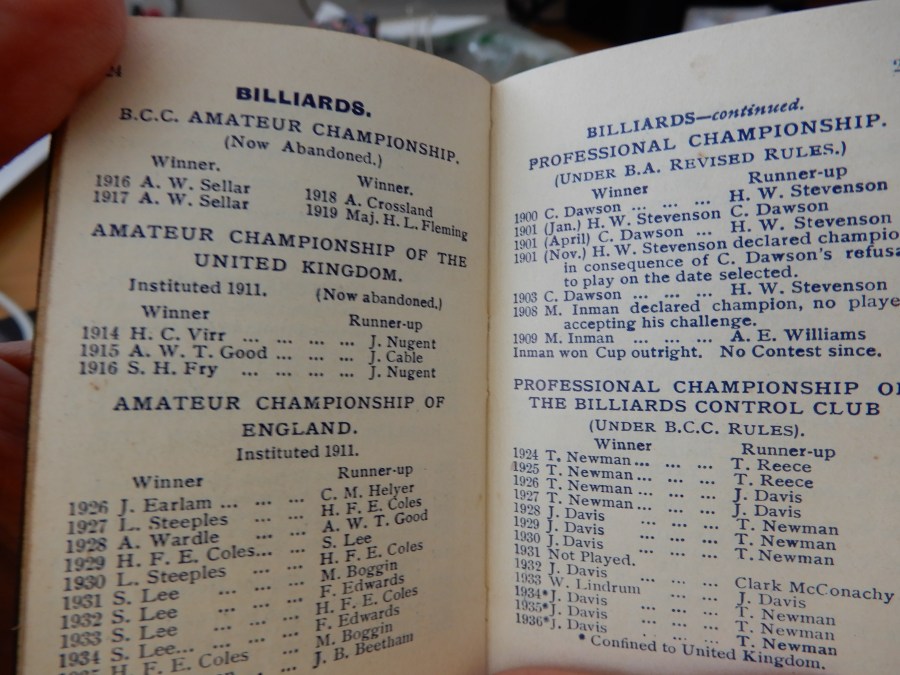 24
BILLIARDS.
B.C.C. AMATEUR CHAMPIONSHIP.
(Now Abandoned.)
Winner. Winner.
1916 A. W. Sellar 1918 A. Crossland
1917 A. W. Sellar 1919 Maj. H. L. Fleming
AMATEUR CHAMPIONSHIP OF THE
UNITED KINGDOM.
Instituted 1911. (Now abandoned.)
Winner Runner-up
1914 H. C. Virr ... ... ... ... J. Nugent
1915 A. W. T. Good ... ... ... J. Cable
1916 S. H. Fry ... ... ... ... J. Nugent
AMATEUR CHAMPIONSHIP OF
ENGLAND.
Instituted 1911.
Winner Runner-up
1926 J. Earlam ... ... ... C. M. Helyer
1927 L. Steeples ... ... H. F. E. Coles
1928 A. Wardle ... ... A. W. T. Good
1929 H. F. E. Coles... ... S. Lee
1930 L. Steeples ... ... H. F. E. Coles
1931 S. Lee ... ... ... M. Boggin
1932 S. Lee ... ... ... F. Edwards
1933 S. Lee ... ... ... H. F. E. Coles
1934 S. Lee... ... ... F. Edwards
H. F. E. Coles ... ... M. Boggin
J. B. Beetham
BILLIARDS—continued.
PROFESSIONAL CHAMPIONSHIP.
(UNDER B.A. REVISED RULES.)
Winner Runner-up
1900 C. Dawson ... ... ... H. W. Stevenson
1901 (Jan.) H. W. Stevenson C. Dawson
1901 (April) C. Dawson ... H. W. Stevenson
1901 (Nov.) H. W. Stevenson declared champio
in consequence of C. Dawson's refusa
to play on the date selected.
1903 C. Dawson ... ... ... H. W. Stevenson
1908 M. Inman declared champion, no playe
accepting his challenge.
1909 M. Inman ... ... ... A. E. Williams
Inman won Cup outright. No Contest since.
PROFESSIONAL CHAMPIONSHIP O
THE BILLIARDS CONTROL CLUB
(UNDER B.C.C. RULES).
Winner Runner-up
1924 T. Newman... ... ... T. Reece
1925 T. Newman... ... ... T. Reece
1926 T. Newman... ... ... J. Davis
1927 T. Newman... ... ... J. Davis
1928 J. Davis ... ... ... T. Newman
1929 J. Davis ... ... ... T. Newman
1930 J. Davis ... ... ... T. Newman
1931 Not Played.
1932 J. Davis ... ... ... Clark McConachy
1933 W. Lindrum ... ... ... J. Davis
1934*J. Davis ... ... ... T. Newman
1935*J. Davis ... ... ... T. Newman
1936*J. Davis ... ... ... T. Newman
* Confined to United Kingdom.